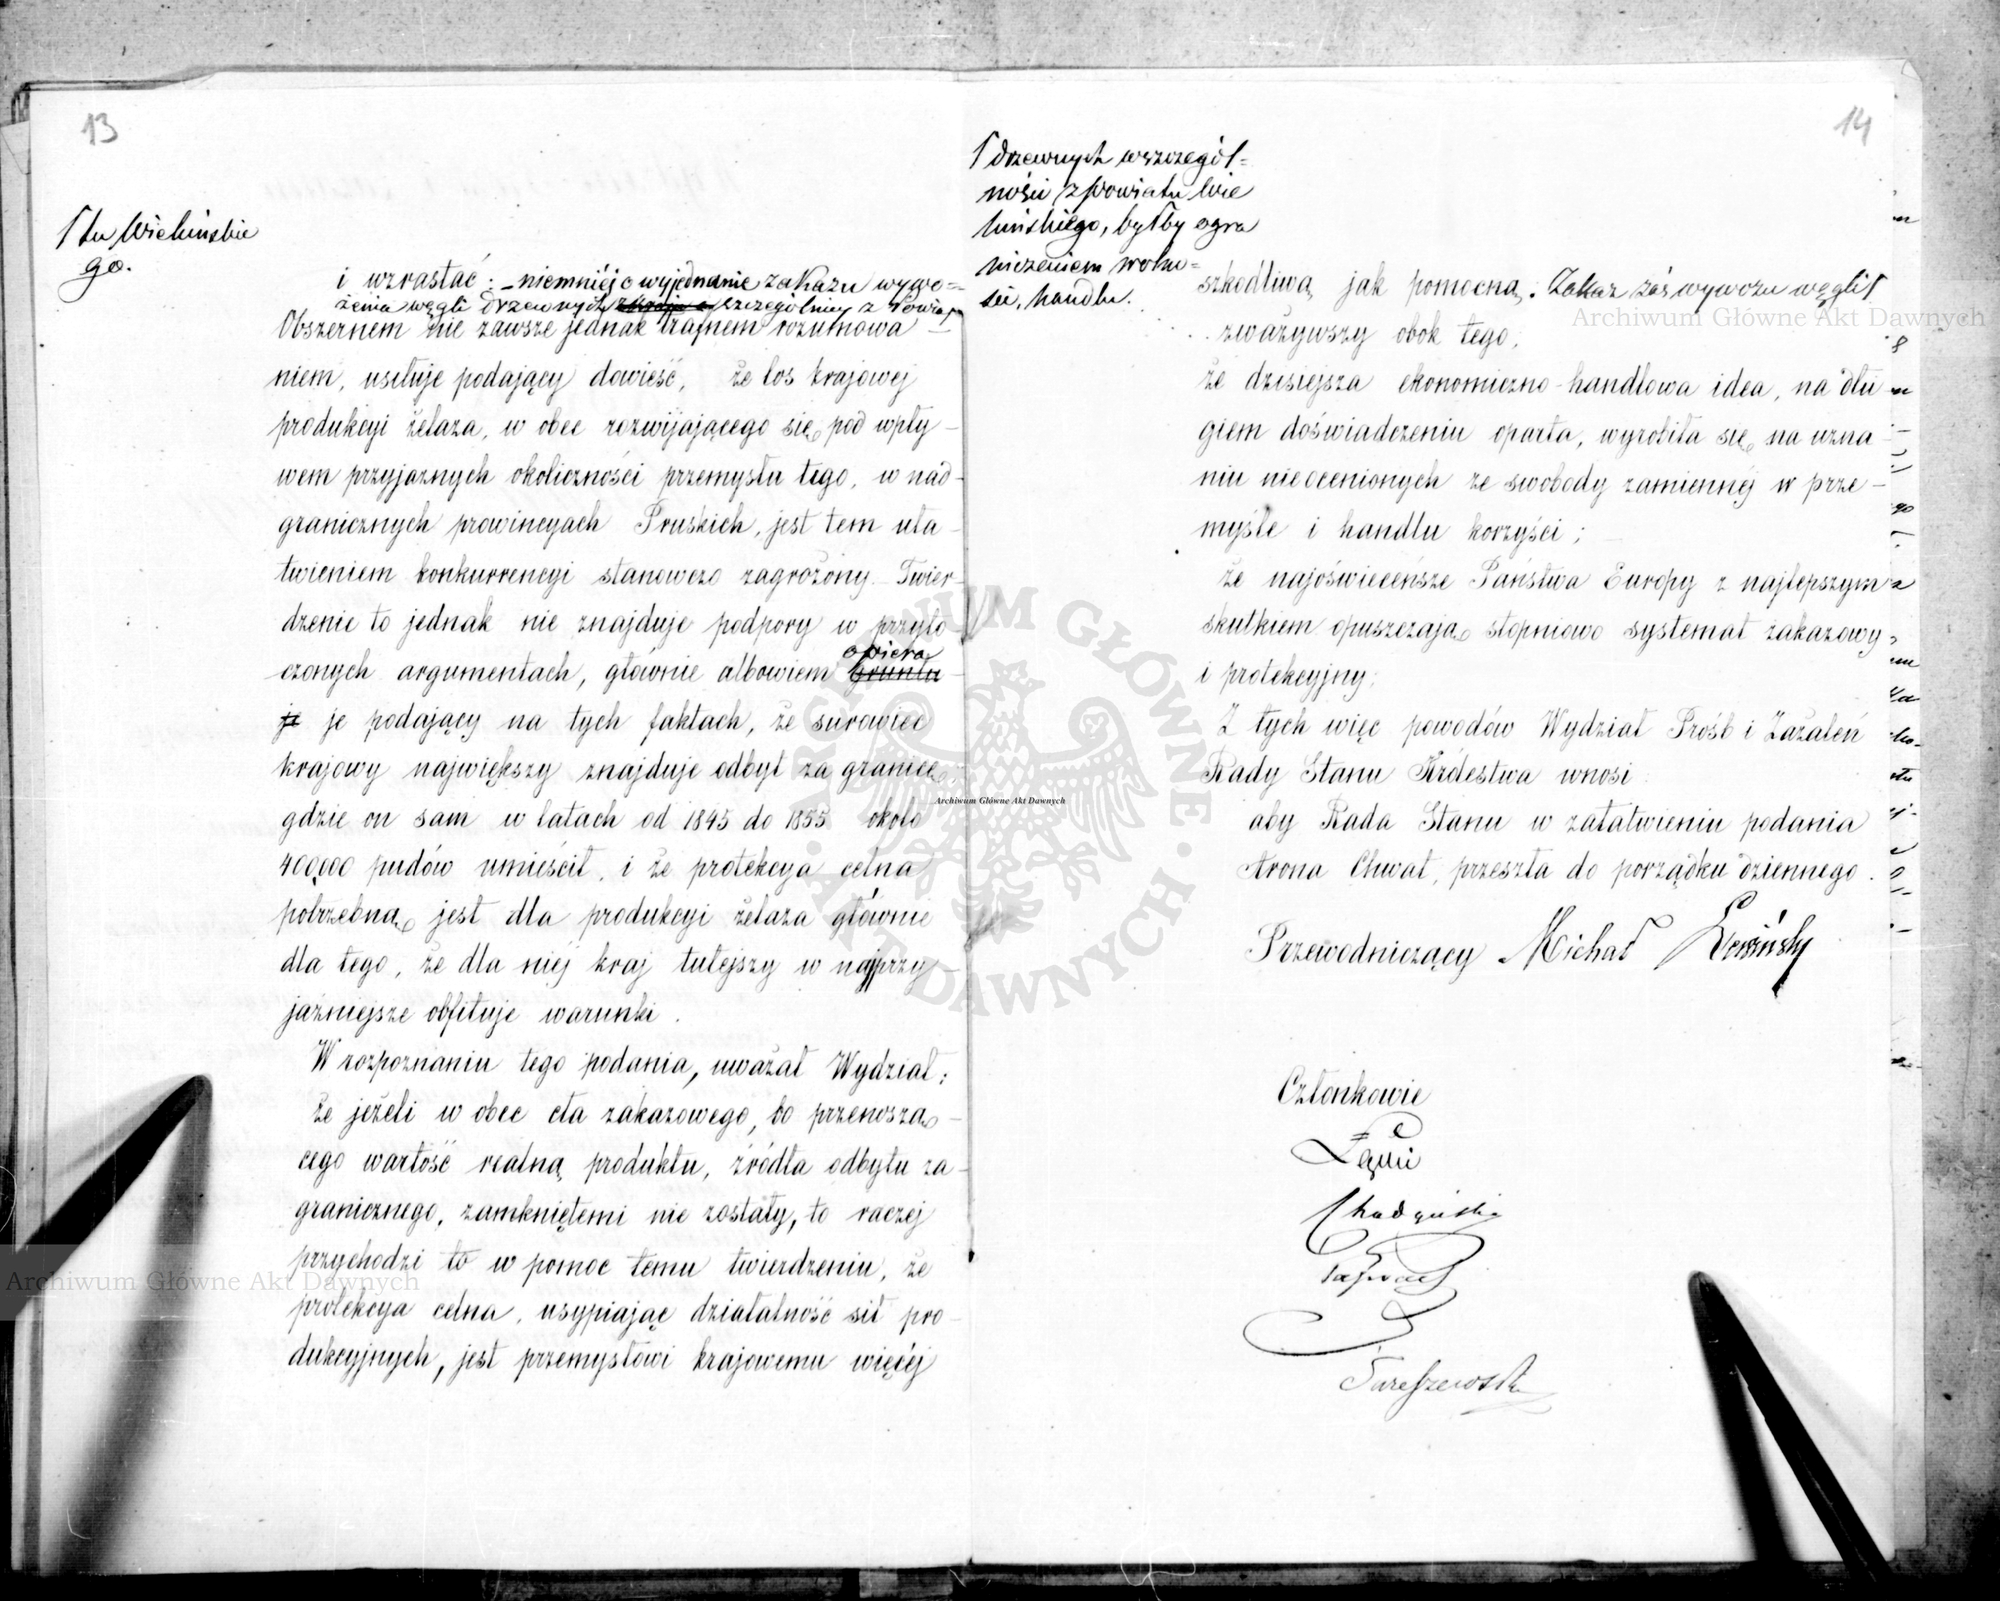 13
⌈tu Wieluńskie
go.
i wzrastać; – niemniéj o wyjednanie zakazu wywo=
żenia węgli drzewnych szczególniej z Powia⌈
Obszernem nie zawsze jednak trafnem rozumowa-
niem, usiłuje podający dowieść, że los krajowej
produkcyi żelaza, w obec rozwijającego się pod wpły-
wem przyjaznych okoliczności przemysłu tego, w nad-
granicznych prowincyach Pruskich, jest tem uła-
twieniem konkurrencyi stanowczo zagrożony. Twier-
dzenie to jednak nie znajduje podpory w przyto-
czonych argumentach, głównie albowiem opiera
gruntu-
je je podający na tych faktach, że surowiec
krajowy największy znajduje odbyt za granicę,
gdzie on sam w latach od 1845 do 1855 około
400,000 pudów umieścił, i że protekcya celna
potrzebną jest dla produkcyi żelaza głównie
dla tego, że dla niéj kraj tutejszy w najprzy-
jaźniejsze obfituje warunki.
W rozpoznaniu tego podania, uważał Wydział;
że jeżeli w obec cła zakazowego, bo przenoszą-
cego wartość realną produktu, źródła odbytu za-
granicznego, zamkniętemi nie zostały, to raczej
przychodzi to w pomoc temu twierdzeniu, że
protekcya celna, usypiając działalność sił pro-
dukcyjnych, jest przemysłowi krajowemu więcéj
14
⌈drzewnych wszczegól=
ności z Powiatu Wie
luńskiego, byłby ogra
niczeniem wolno=
ści, handlu.
szkodliwą jak pomocną. Zakaz zaś wywozu węgli⌈
zważywszy obok tego,
że dzisiejsza ekonomiczno-handlowa idea, na dłu
giem doświadczeniu oparta, wyrobiła się na uzna-
niu nieocenionych ze swobody zamiennéj w prze-
myśle i handlu korzyści;
że najoświeceńsze Państwa Europy z najlepszym
skutkiem opuszczają stopniowo systemat zakazowy
i protekcyjny;
Z tych więc powodów Wydział Próśb i Zażaleń
Rady Stanu Królestwa wnosi:
aby Rada Stanu w załatwieniu podania
Arona Chwat, przeszła do porządku dziennego.
Przewodniczący Michał
Członkowie
Archiwum Główne Akt Dawnych
Archiwum Główne Akt Dawnych
Archiwum Główne Akt Dawnych
ARCHIWUM GŁÓWNE · AKT DAWNYCH ·